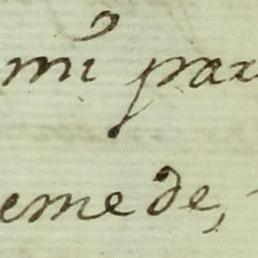 mi par
eme de,